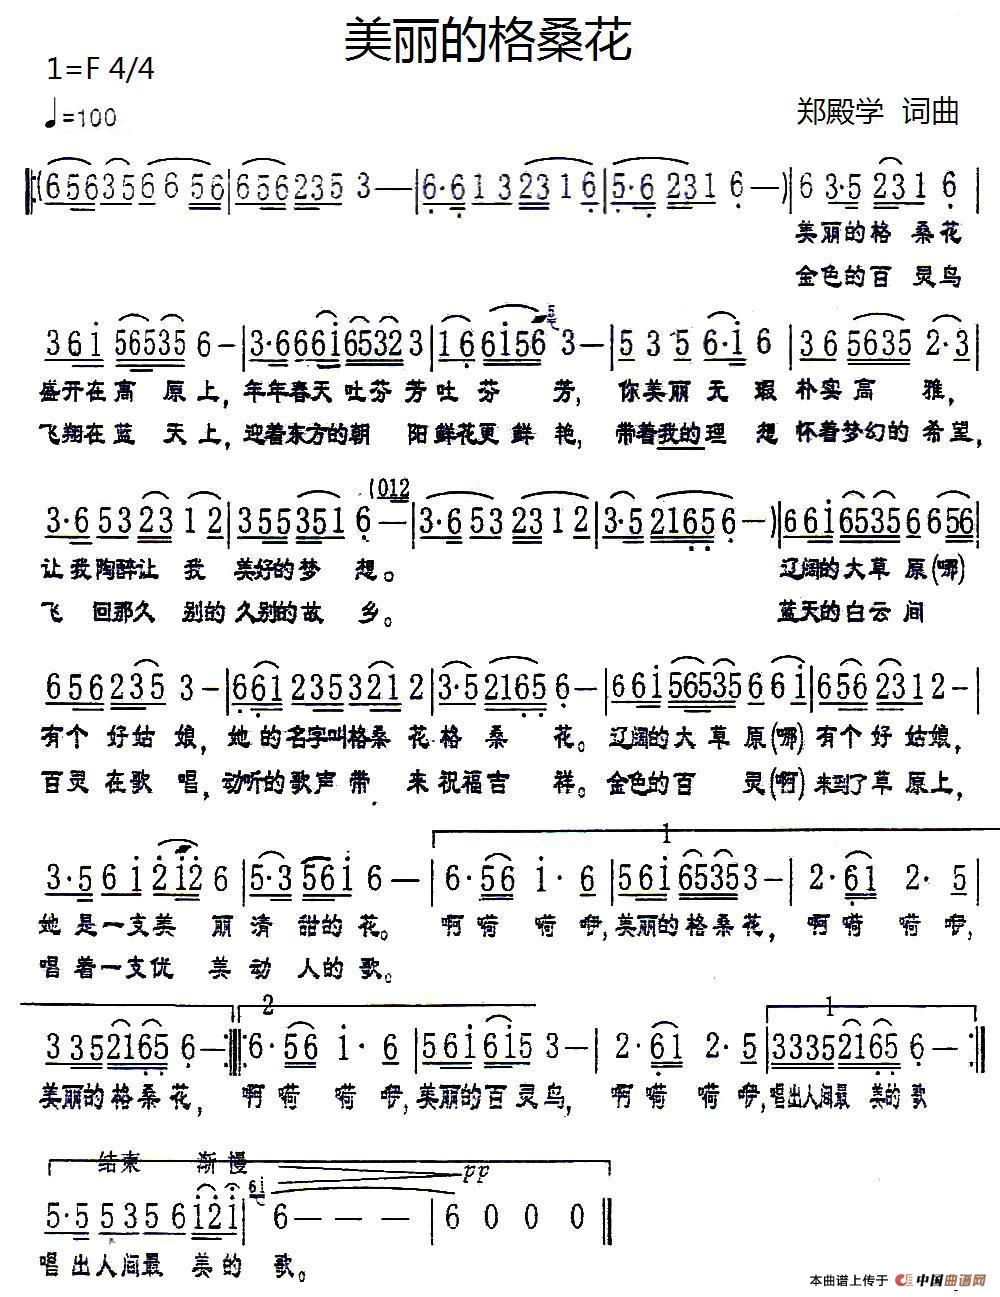 美丽的格桑花
1=F 4/4
♩=100
郑殿学 词曲
(656 35 6 6 56 | 656 235 3 — | 6·6 1 3 231 6 | 5·6 231 6 — ) | 6 3·5 231 6 |
美丽的格 桑花
金色的百 灵鸟
3 6 i 56535 6 — | 3·6 66i 65323 | 16 6i56 3 — | 5 3 5 6·i 6 | 36 5635 2·3 |
盛开在高 原上,年年春天吐芬芳吐 芬 芳,你美丽无 瑕 朴实高 雅,
飞翔在蓝 天上,迎着东方的朝 阳鲜花更鲜 艳,带着我的理 想 怀着梦幻的希望,
(012
3·6 53 23 1 2 | 355351 6 — | 3·6 53 231 2 | 3·5 2165 6 — ) | 66i 6535 6 656 |
让我陶醉让 我 美好的梦 想。 辽阔的大草 原(哪)
飞 回那久 别的久别的故 乡。 蓝天的白云 间
656 235 3 — | 661 235 321 2 | 3·5 2165 6 — | 66i 56535 6 6i | 656 231 2 — |
有个 好姑 娘,她的名字叫格桑 花格 桑 花。辽阔的大草 原(哪)有个好姑娘,
百灵在歌 唱,动听的歌声带 来祝福吉 祥。金色的百 灵(啊)来到了草原上,
1
3·5 6 i 2i2 6 | 5·3 56i 6 — | 6·56 i·6 | 56i 6535 3 — | 2·61 2·5 |
她 是一支美 丽 清 甜的花。 啊嗬 嗬咿,美丽的格桑花, 啊嗬 嗬咿,
唱着一支优 美动 人的歌。
2 1
3 35 2165 6 — :| 6·56 i·6 | 56i 6i5 3 — | 2·61 2·5 | 3335 2165 6 — :|
美丽的格桑花, 啊嗬 嗬咿,美丽的百灵鸟, 啊嗬 嗬咿,唱出人间最 美的歌
结束 渐慢 pp
5·5 5 35 6 i2i | 6 — — — | 6 0 0 0 ‖
唱出人间最 美的 歌。
本曲谱上传于 中国曲谱网